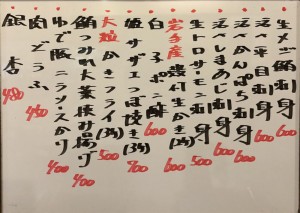 生メジ鮪刺身 600
天然平目刺身 600
天然かんぱち刺身
天然まあじ刺身
生トロサーモン刺身 500
岩手産 殻付生かき(2ヶ) 600
白子ポン酢 600
姫サザエつぼ焼き(3ヶ) 700
大粒かきフライ(3ヶ) 500
鮪つみれ大葉挟み揚げ 400
ゆで豚ニラソースかけ 400
肉どうふ 450
銀杏 450